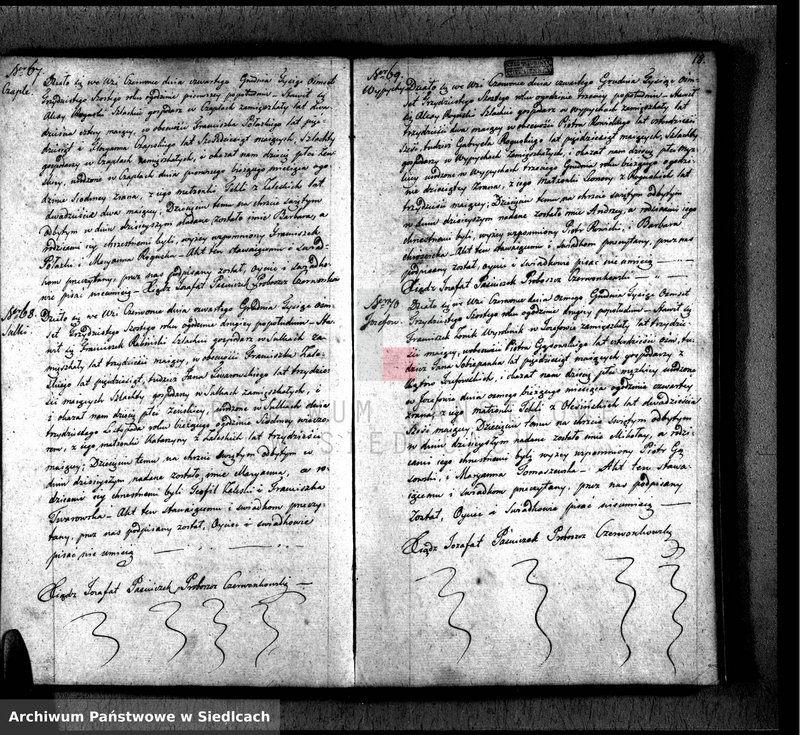 Nro 67.
Czaple.
Działo się we Wsi Czerwonce dnia czwartego Grudnia tysiąc ośmset
trzydziestego szóstego roku o godzinie pierwszej popołudniu. Stawił się
Alexy Rogacki Szlachcic gospodarz w Czaplach zamieszkały lat dwa-
dzieścia cztery mający, w obecności Franciszka Połaskiego lat pięć-
dziesiąt i Czapskiego lat sześćdziesiąt mających, Szlachty
gospodarzy w Czaplach zamieszkałych, i okazał nam dziecię płci żeń-
skiej, urodzone w Czaplach dnia pierwszego bieżącego miesiąca o go-
dzinie siódmej zrana, z jego małżonki Tekli z Zaleskich lat
dwadzieścia dwa mającej; Dziecięciu temu na chrzcie świętym
odbytym w dniu dzisiejszym nadane zostało imię Barbara, a
rodzicami jej chrzestnemi byli, wyżej wspomniony Franciszek
Połaski i Maryanna Rogacka. Akt ten stawającemu i świad-
kom przeczytany, przez nas podpisany został, Ojciec i Świadko-
wie pisać nieumieją — Xiądz Jozafat Paświczek Proboszcz Czerwonkowski
Nro 68.
Sulki.
Działo się we Wsi Czerwonce dnia czwartego Grudnia tysiąc ośm-
set trzydziestego szóstego roku o godzinie drugiej popołudniu. Sta-
wił się Franciszek Szlachcic gospodarz w Sulkach za-
mieszkały, lat trzydzieści mający, w obecności Franciszka Zale-
skiego lat pięćdziesiąt, tudzież Jana Twarowskiego lat trzydzie-
ści mających Szlachty gospodarzy w Sulkach zamieszkałych, i
okazał nam dziecię płci żeńskiej, urodzone w Sulkach dnia
trzydziestego Listopada roku bieżącego o godzinie siódmej wieczo-
rem, z jego małżonki Katarzyny z Zaleskich lat trzydzieści
mającej; Dziecięciu temu na chrzcie świętym odbytym w
dniu dzisiejszym nadane zostało imię Maryanna, a ro-
dzicami jej chrzestnemi byli Teofil Zaleski i Franciszka
Twarowska — Akt ten stawającemu i świadkom przeczy-
tany, przez nas podpisany został, Ojciec i świadkowie
pisać nie umieją
Xiądz Jozafat Paświczek Proboszcz Czerwonkowski
Nro 69.
Wypychy
Działo się we Wsi Czerwonce dnia czwartego Grudnia tysiąc ośm-
set trzydziestego szóstego roku o godzinie trzeciej popołudniu. Stawił
się Alexy Szlachcic gospodarz w Wypychach zamieszkały lat
trzydzieści dwa mający w obecności Piotra lat czterdzieści
sześć tudzież Gabryela Rogackiego lat pięćdziesiąt mających, Szlachty
gospodarzy w Wypychach zamieszkałych, i okazał nam dziecię płci męz-
kiej urodzone w Wypychach trzeciego Grudnia roku bieżącego o godzi-
nie dziesiątej zrana, z jego małżonki z Rogackich lat
trzydzieści mającej; Dziecięciu temu na chrzcie świętym odbytym
w dniu dzisiejszym nadane zostało imię Andrzej, a rodzicami jego
chrzestnemi byli, wyżej wspomniony Piotr i Barbara
Akt ten stawającemu i świadkom przeczytany, przez nas
podpisany został, ojciec i świadkowie pisać nie umieją
Xiądz Jozafat Paświczek Proboszcz Czerwonkowski
Nro 70.
Jozefow.
Działo się we Wsi Czerwonce dnia ósmego Grudnia tysiąc ośmset
trzydziestego szóstego roku o godzinie drugiej popołudniu — Stawił się
Franciszek Wyrobnik w Jozefowie zamieszkały, lat trzydzie-
ści mający, w obecności Piotra lat czterdzieści ośm, tu-
dzież Jana lat pięćdziesiąt mających gospodarzy z
i okazał nam dziecię płci męzkiej urodzone
w Jozefowie dnia ósmego bieżącego miesiąca o godzinie czwartej
zrana, z jego małżonki Tekli z Olesińskich lat dwadzieścia
sześć mającej; Dziecięciu temu na chrzcie świętym odbytym
w dniu dzisiejszym nadane zostało imię Mikołaj, a rodzi-
cami jego chrzestnemi byli wyżej wspomniony Piotr
i Maryanna Tomaszewska — Akt ten stawa-
jącemu i świadkom przeczytany, przez nas podpisany
został, Ojciec i Świadkowie pisać nieumieją
Xiądz Jozafat Paświczek Proboszcz Czerwonkowski
Archiwum Państwowe w Siedlcach